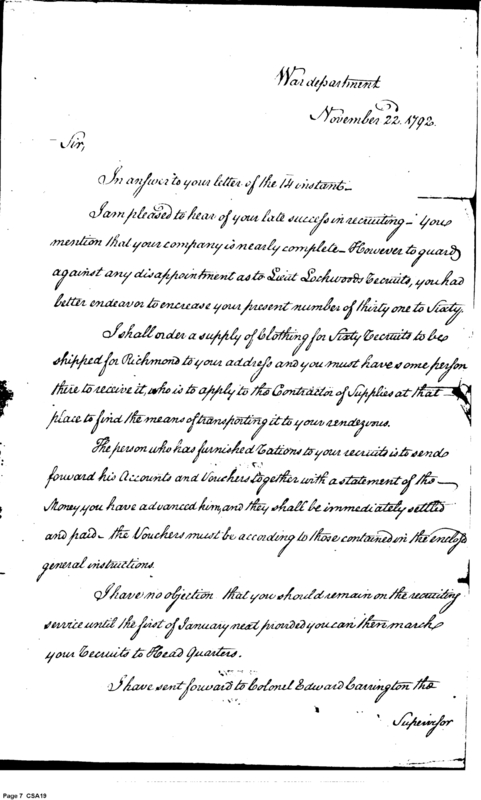 War department
November 22d. 1792.
Sir,
In answer to your letter of the 14 instant -
I am pleased to hear of your late success in recruiting - You
mention that your company is nearly complete - However to guard
against any disappointment as to Lieut Lockwoods Recruits, you had
better endeavor to encrease your present number of thirty one to Sixty.
I shall order a supply of Clothing for Sixty Recruits to be
shipped for Richmond to your address and you must have some person
there to receive it, who is to apply to the Contractor of Supplies at that
place to find the means of transporting it to your rendezvous.
The person who has furnished Rations to your recruits is to send
forward his Accounts and Vouchers together with a statement of the
Money you have advanced him, and they shall be immediately settled
and paid - the Vouchers must be according to those contained in the enclosd
general instructions.
I have no objection that you should remain on the recruiting
service until the first of January next provided you can then march
your Recruits to Head Quarters.
I have sent forward to Colonel Edward Carrington the
Supervisor
Page 7 CSA19